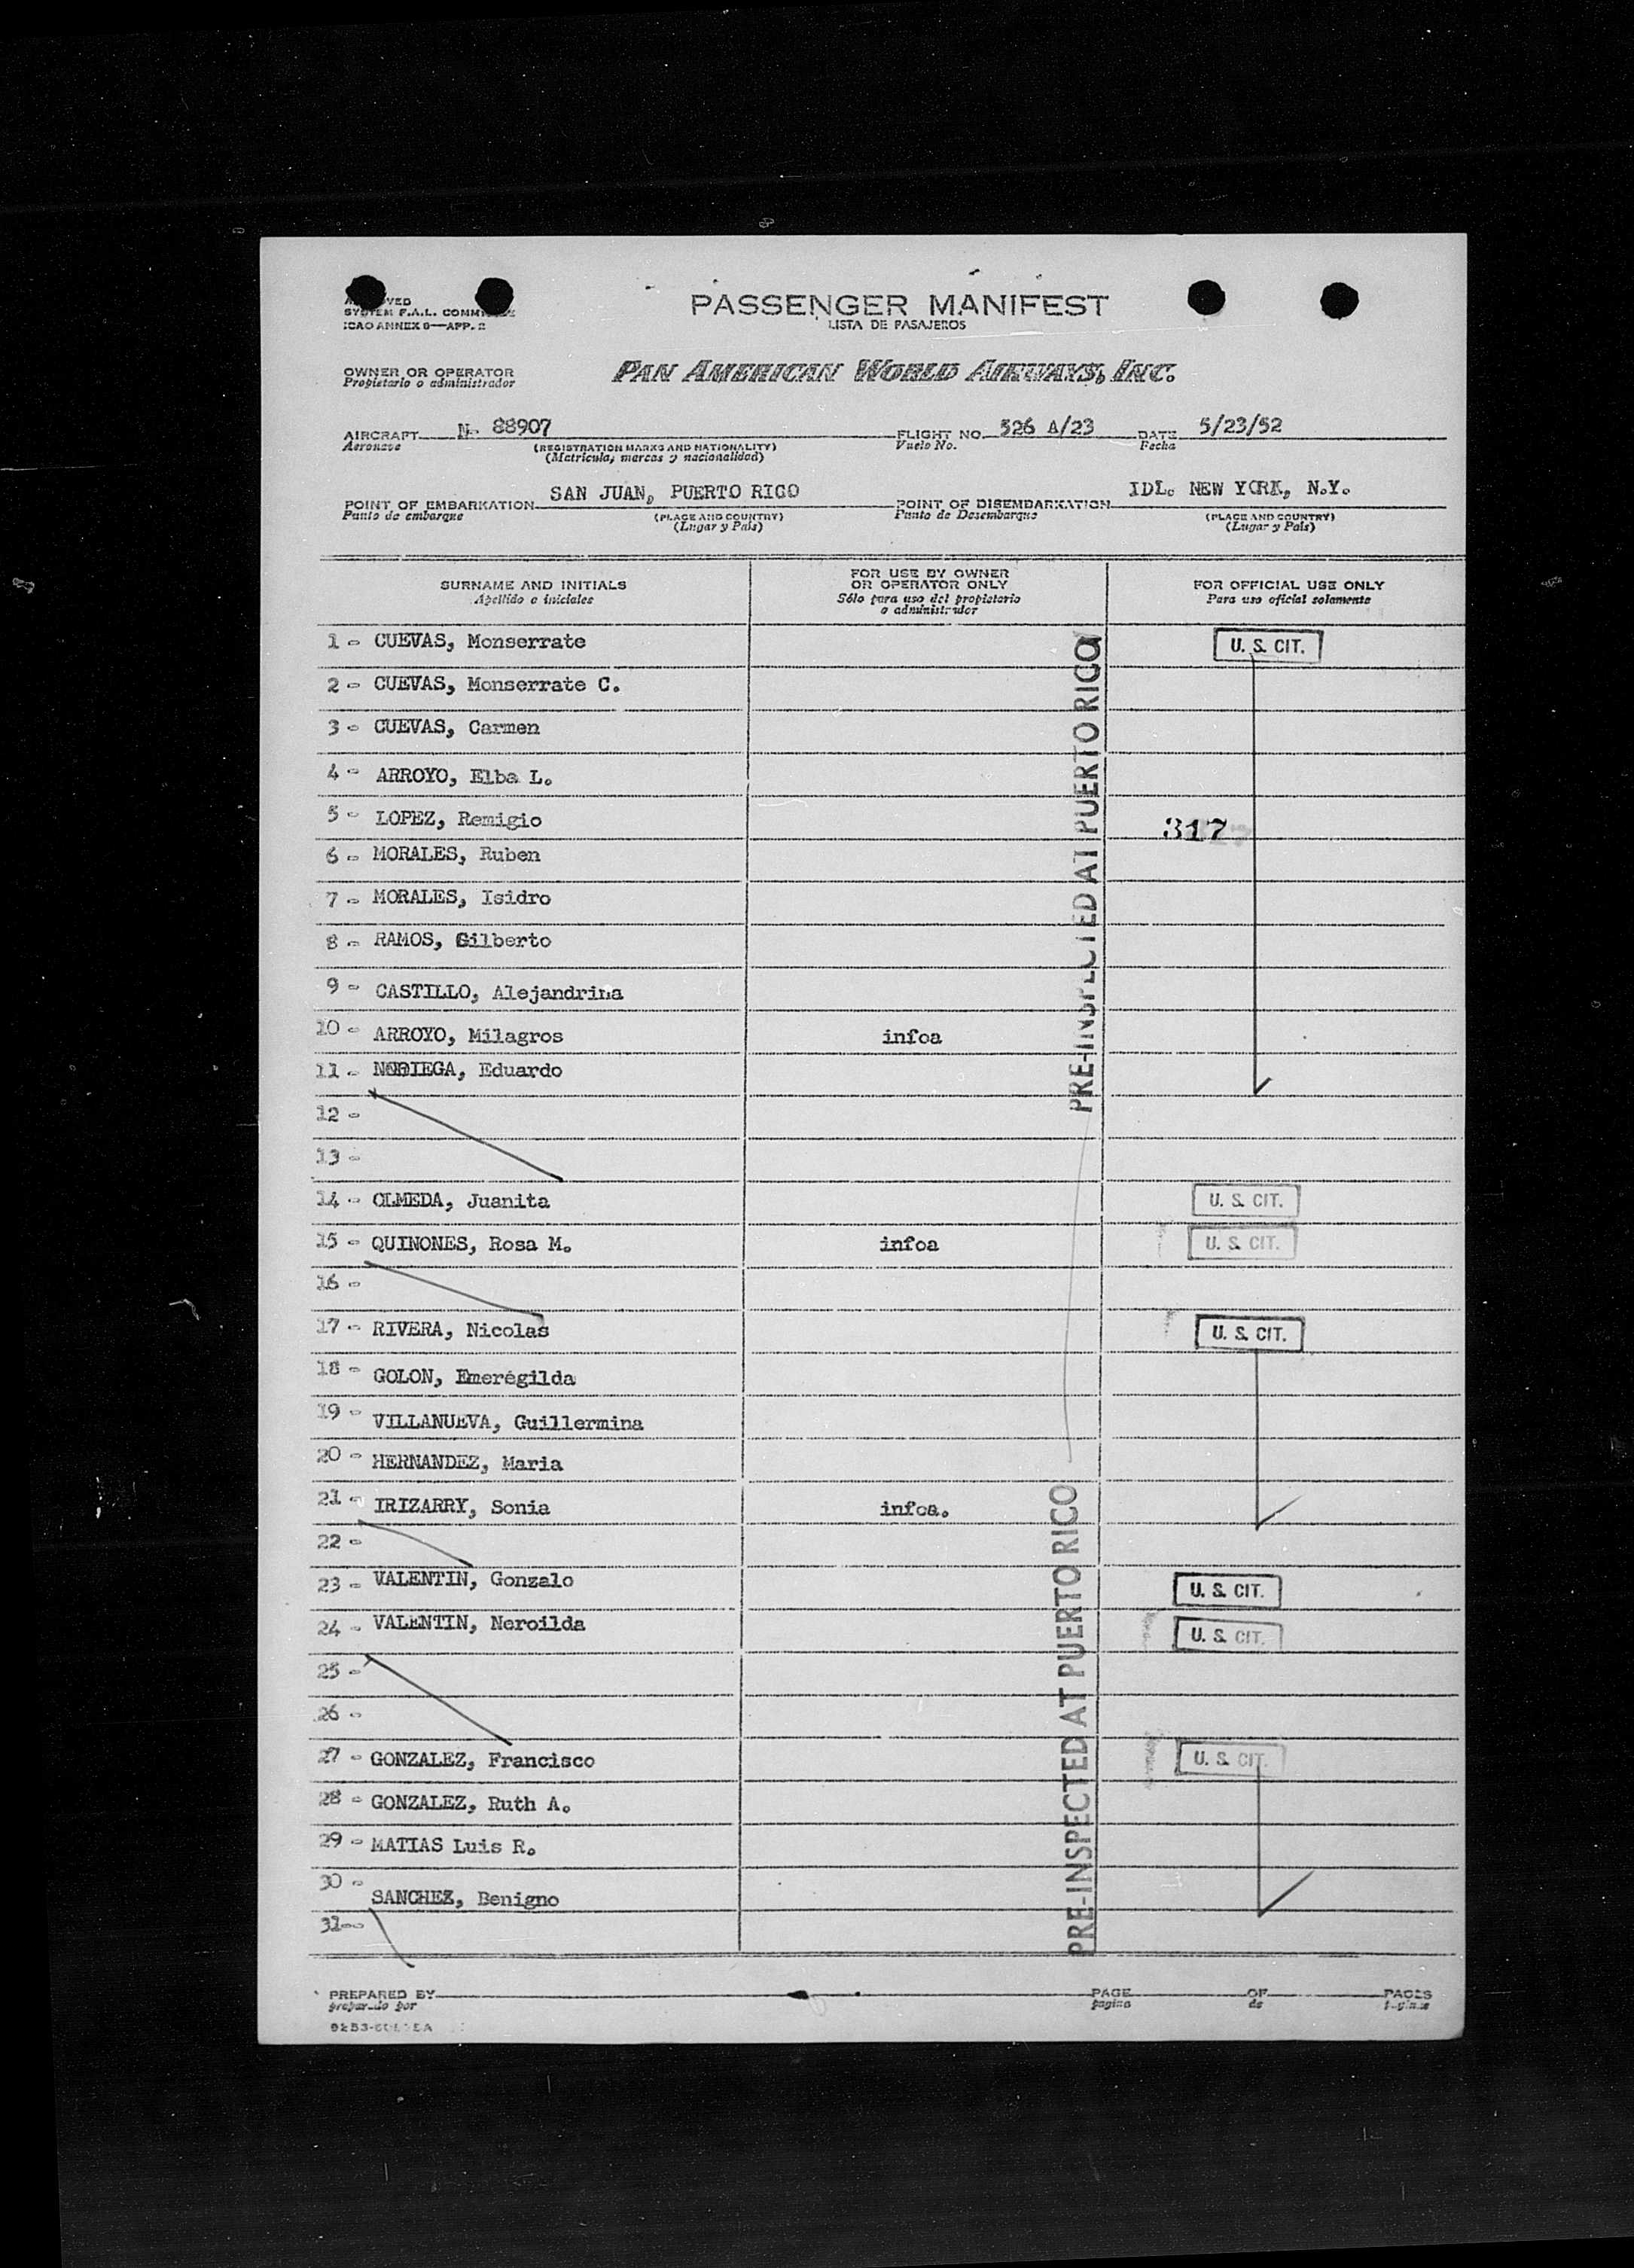 PASSENGER MANIFEST
LISTA DE PASAJEROS
SYSTEM F.A.L.
ICAO ANNEX 9—APP. 2
OWNER OR OPERATOR
Propietario o administrador
PAN AMERICAN WORLD AIRWAYS, INC.
AIRCRAFT N- 88907 FLIGHT NO. 526 A/23 DATE 5/23/52
Aeronave (REGISTRATION MARKS AND NATIONALITY) Vuelo No. Fecha
(Matricula, marcas y nacionalidad)
POINT OF EMBARKATION SAN JUAN, PUERTO RICO POINT OF DISEMBARKATION IDL. NEW YORK, N.Y.
Punto de embarque (PLACE AND COUNTRY) Punto de Desembarque (PLACE AND COUNTRY)
(Lugar y País) (Lugar y País)
SURNAME AND INITIALS FOR USE BY OWNER OR OPERATOR ONLY FOR OFFICIAL USE ONLY
Apellido e iniciales Sólo para uso del propietario o administrador Para uso oficial solamente
1 - CUEVAS, Monserrate U. S. CIT.
2 - CUEVAS, Monserrate C.
3 - CUEVAS, Carmen
4 - ARROYO, Elba L.
5 - LOPEZ, Remigio 317
6 - MORALES, Ruben
7 - MORALES, Isidro
8 - RAMOS, Gilberto
9 - CASTILLO, Alejandrina
10 - ARROYO, Milagros infoa
11 - NORIEGA, Eduardo
PRE-INSPECTED AT PUERTO RICO
12 -
13 -
14 - OLMEDA, Juanita U. S. CIT.
15 - QUINONES, Rosa M. infoa U. S. CIT.
16 -
17 - RIVERA, Nicolas U. S. CIT.
18 - GOLON, Emerégilda
19 - VILLANUEVA, Guillermina
20 - HERNANDEZ, Maria
21 - IRIZARRY, Sonia infoa.
22 -
23 - VALENTIN, Gonzalo U. S. CIT.
24 - VALENTIN, Neroilda U. S. CIT.
25 -
26 -
27 - GONZALEZ, Francisco U. S. CIT.
28 - GONZALEZ, Ruth A.
29 - MATIAS Luis R.
30 - SANCHEZ, Benigno
31--
PRE-INSPECTED AT PUERTO RICO
PREPARED BY PAGE OF PAGES
preparado por pagina de